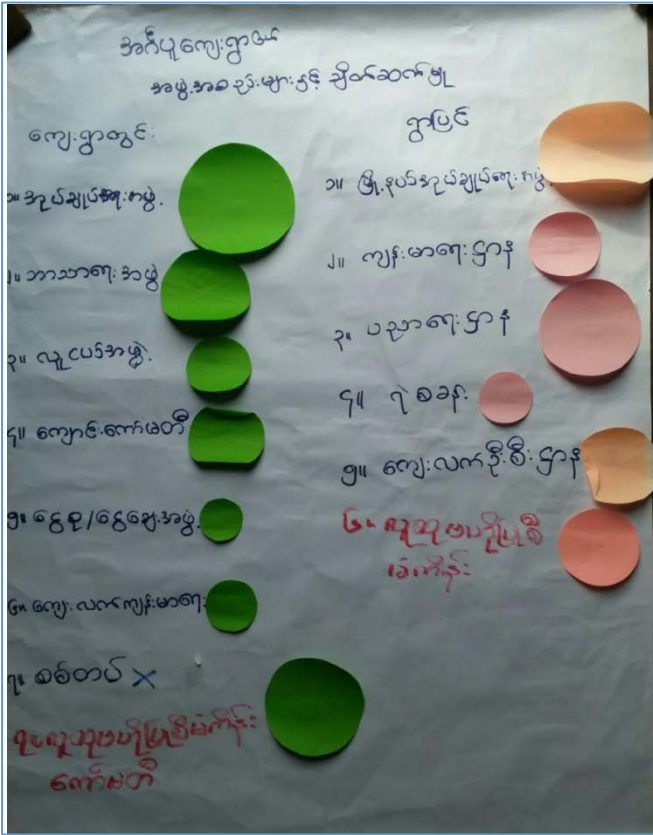 အင်္ဂပူကျေးရွာ၏
အဖွဲ့အစည်းများနှင့် ချိတ်ဆက်မှု
ကျေးရွာတွင်း
၁။ အုပ်ချုပ်ရေးအဖွဲ့
၂။ ဘာသာရေးအဖွဲ့
၃။ လူငယ်အဖွဲ့
၄။ ကျောင်းကော်မတီ
၅။ ငွေစု/ငွေချေးအဖွဲ့
၆။ ကျေးလက်ကျန်းမာရေး
၇။ စစ်တပ် ×
၇။ လူထုဗဟိုပြုစီမံကိန်း
ကော်မတီ
ရွာပြင်
၁။ မြို့နယ်အုပ်ချုပ်ရေးအဖွဲ့
၂။ ကျန်းမာရေးဌာန
၃။ ပညာရေးဌာန
၄။ ရဲစခန်း
၅။ ကျေးလက်ဦးစီးဌာန
၆။ လူထုဗဟိုပြုစီ
မံကိန်း